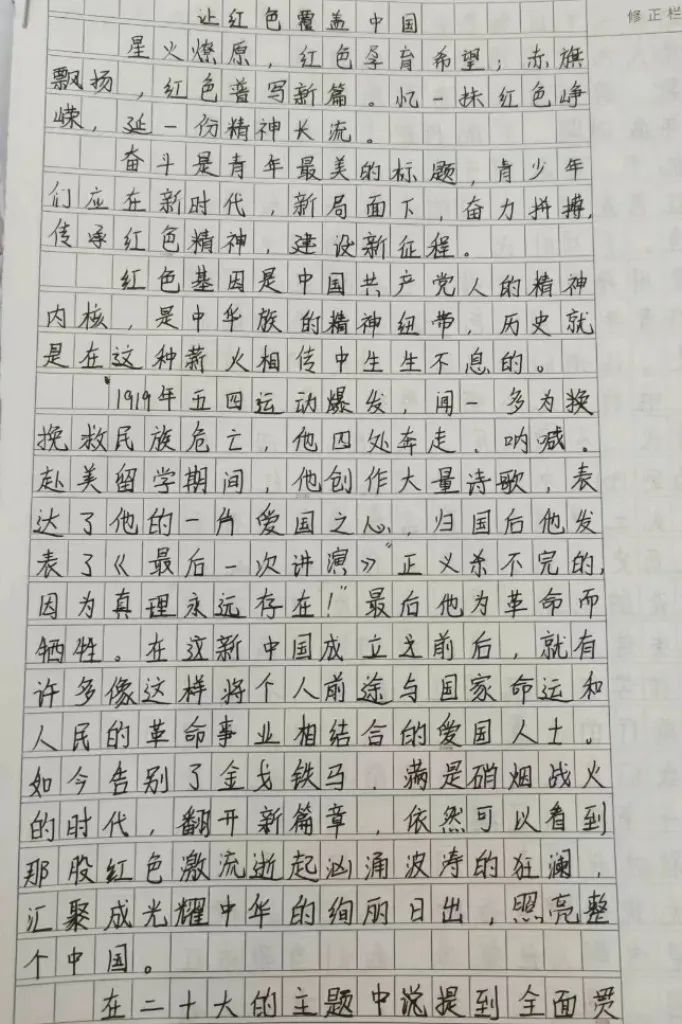 让红色覆盖中国
修正栏
星火燎原，红色孕育希望；赤旗
飘扬，红色普写新篇。忆一抹红色峥
嵘，延一份精神长流。
奋斗是青年最美的标题，青少年
们应在新时代，新局面下，奋力拼搏，
传承红色精神，建设新征程。
红色基因是中国共产党人的精神
内核，是中华族的精神纽带，历史就
是在这种薪火相传中生生不息的。
1919年五四运动爆发，闻一多为挨
挽救民族危亡，他四处奔走、呐喊。
赴美留学期间，他创作大量诗歌，表
达了他的一片爱国之心，归国后他发
表了《最后一次讲演》“正义杀不完的，
因为真理永远存在！”最后他为革命而
牺牲。在这新中国成立之前后，就有
许多像这样将个人前途与国家命运和
人民的革命事业相结合的爱国人士。
如今告别了金戈铁马，满是硝烟战火
的时代，翻开新篇章，依然可以看到
那股红色激流逝起汹涌波涛的狂澜，
汇聚成光耀中华的绚丽日出，照亮整
个中国。
在二十大的主题中说提到全面贯